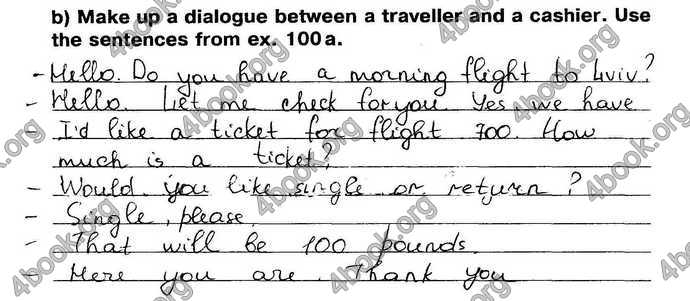 b) Make up a dialogue between a traveller and a cashier. Use
the sentences from ex. 100a.
- Hello. Do you have a morning flight to Lviv?
- Hello. Let me check for you. Yes we have
- I'd like a ticket for flight 700. How
much is a ticket?
- Would you like single or return?
- Single, please.
- That will be 100 pounds.
- Here you are. Thank you
4book.org